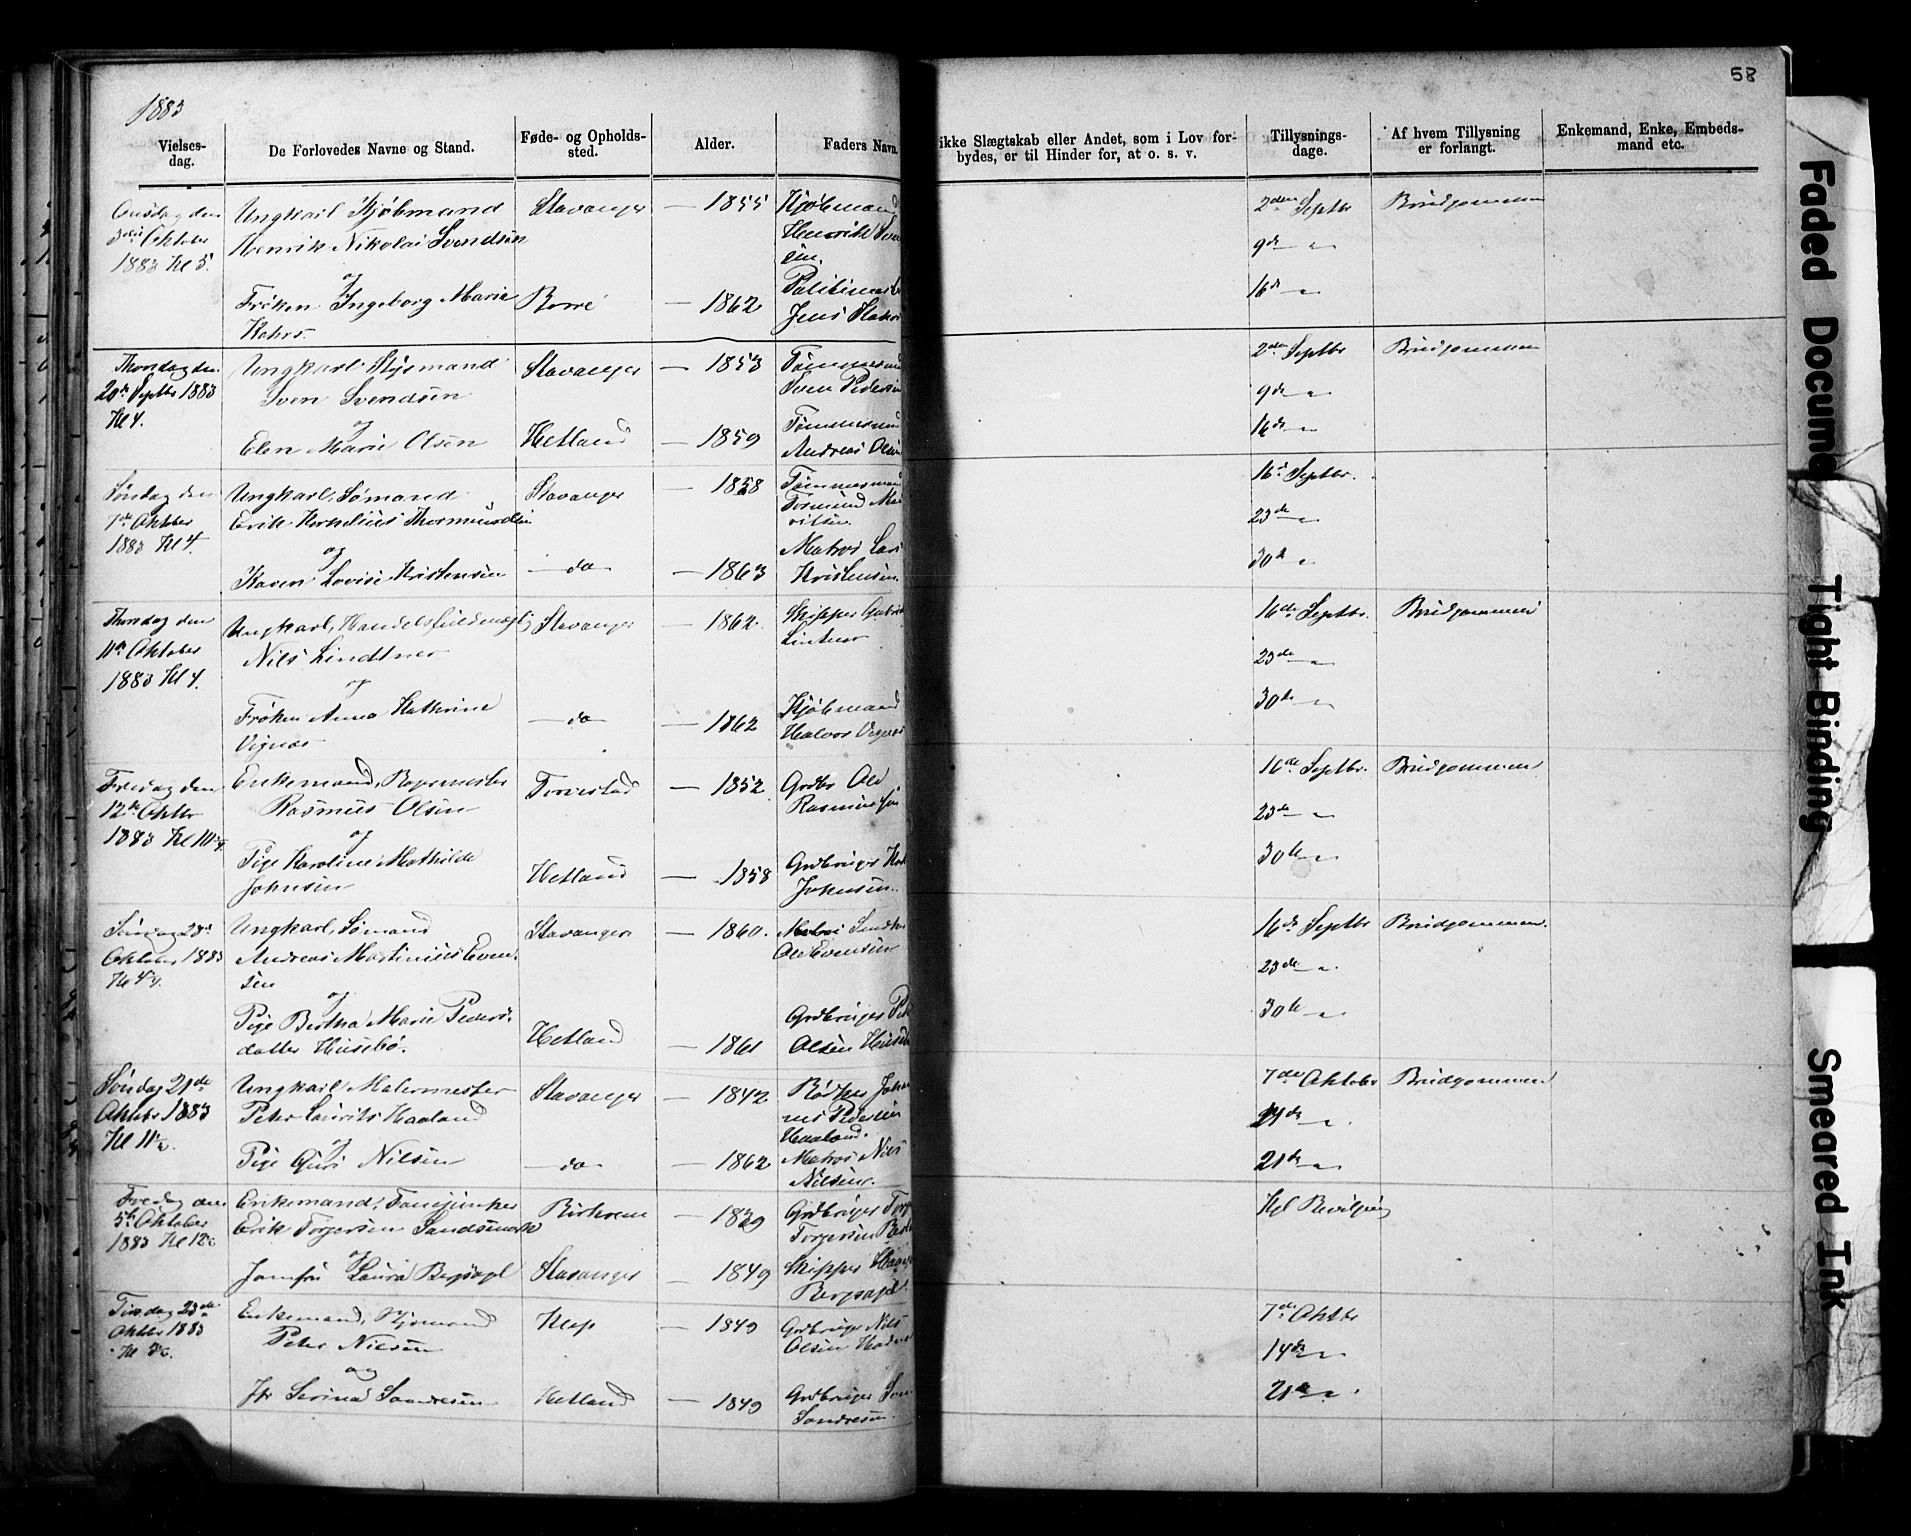 1883
58
Vielses-
dag.
De Forlovedes Navne og Stand.
Føde- og Opholds-
sted.
Alder.
Faders Navn.
ikke Slægtskab eller Andet, som i Lov for-
bydes, er til Hinder for, at o. s. v.
Tillysnings-
dage.
Af hvem Tillysning
er forlangt.
Enkemand, Enke, Embeds-
mand etc.
Onsdag den
3die Oktober
1883 Kl 5.
Ungkarl Kjøbmand
Henrik Nikolai Svendsen
og
Frøken Ingeborg Marie
Stavanger
— 1855
Kjøbmand
Henrik Sven
sen.
Borre
— 1862
Jens
2den Septbr
9de — " —
16de — " —
Brudgommen
Thorsdag den
20de Septbr 1883
Kl 4.
Ungkarl Styrmand
Sven Svendsen
og
Elen Marie Olsen
Stavanger
— 1853
Tømmermand
Sven Pedersen
Hetland
— 1859
Tømmermand
Andreas Olsen
2den Septbr
9de — " —
16de — " —
Brudgommen
Søndag den
7de Oktober
1883 Kl 4.
Ungkarl, Sømand
Erik Kornelius Thormundsen
og
Karen Lovise Kristensen
Stavanger
— 1858
Tømmermand
Tormund
— do —
— 1863
Matros Lars
Kristensen
16de Septbr.
23de — " —
30te — " —
Thorsdag den
11te Oktober
1883 Kl 4.
Ungkarl, Handelsfuldmægtig
Nils Lindtner
og
Frøken Anna Kathrine
Stavanger
— 1862.
Skipper Gabriel
Lintner
— do —
— 1862
Kjøbmand
Halvor
16de Septbr.
23de — " —
30te — " —
Brudgommen
Fredag den
12te Oktbr
1883 Kl
Enkemand,
Rasmus Olsen
og
Pige Karoline Mathilde
Johnsen
Torvestad
— 1852
Grdbr Ole
Rasmussen
Hetland
— 1858
Grdbruger
Johnsen.
16de Septbr.
23de — " —
30te — " —
Brudgommen
Søndag
Oktober 1883
Ungkarl, Sømand
Andreas Martinius Even-
sen
og
Pige Bertha Marie Peders-
datter Husebø.
Stavanger
— 1860.
Ole Evensen
Hetland
— 1861
Grdbruger Peder
Olsen Husebø
16de Septbr
23de — " —
30te — " —
Brudgommen.
Søndag 21de
Oktbr 1883
Kl 11½
Ungkarl Malermester
Peter Laurits Haaland
og
Pige Guri Nilsen
Stavanger
— 1842
Bødker Johan
nes Pedersen
Haaland.
— do —
— 1862
Matros Nils
Nilsen.
7de Oktober
14de — " —
21de — " —
Brudgommen
Fredag den
5te Oktober
1883 Kl 12½
Enkemand, Fanejunker
Erik Torgersen Sandsmark
og
Jomfru Laura Bergsagel
— 1839
Grdbruger
Torgersen
Stavanger
— 1849
Skipper
Bergsagel
Kgl Bevilgning
Tirsdag 23de
Oktbr 1883
Enkemand,
Peter Nilsen
og
Jfr Serina Sandresen
Klep
— 1849
Grdbruger Nils
Olsen
Hetland
— 1849
Grdbruger
Sandresen
7de Oktbr
14de — " —
21de — " —
Faded Document
Tight Binding
Smeared Ink